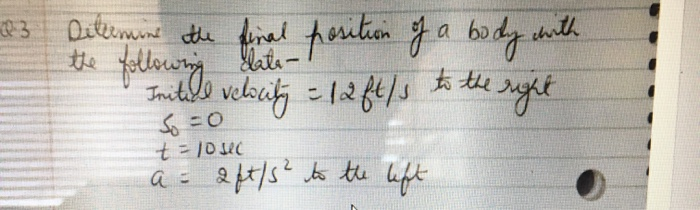 Q3 Determine the final position of a body with
the following data-
Initial velocity = 12 ft/s to the right
S₀ = 0
t = 10 sec
a = 2 ft/s² to the left